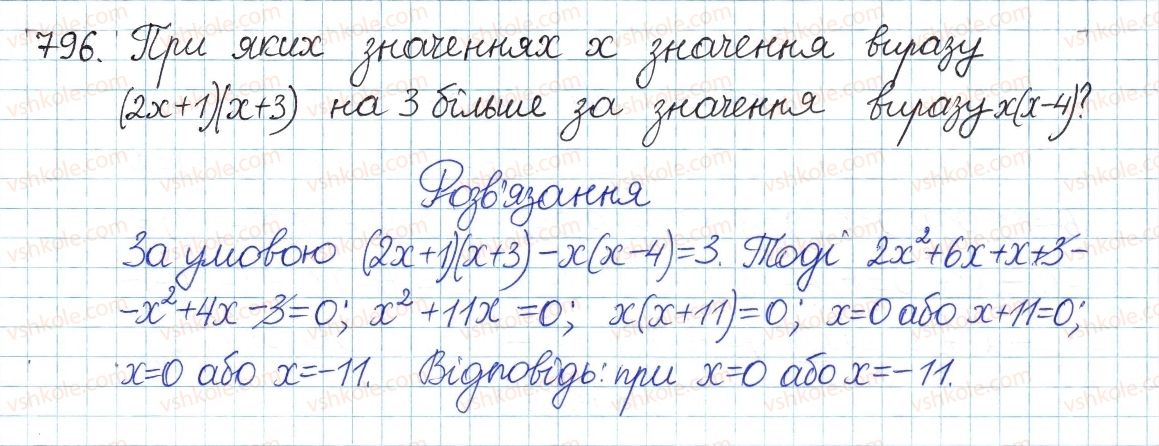 796. При яких значеннях х значення виразу
(2x+1)(x+3) на 3 більше за значення виразу x(x-4)?
Розв'язання
За умовою (2x+1)(x+3)-x(x-4)=3. Тоді 2x²+6x+x+3-
-x²+4x-3=0; x²+11x=0; x(x+11)=0; x=0 або x+11=0;
x=0 або x=-11. Відповідь: при x=0 або x=-11.